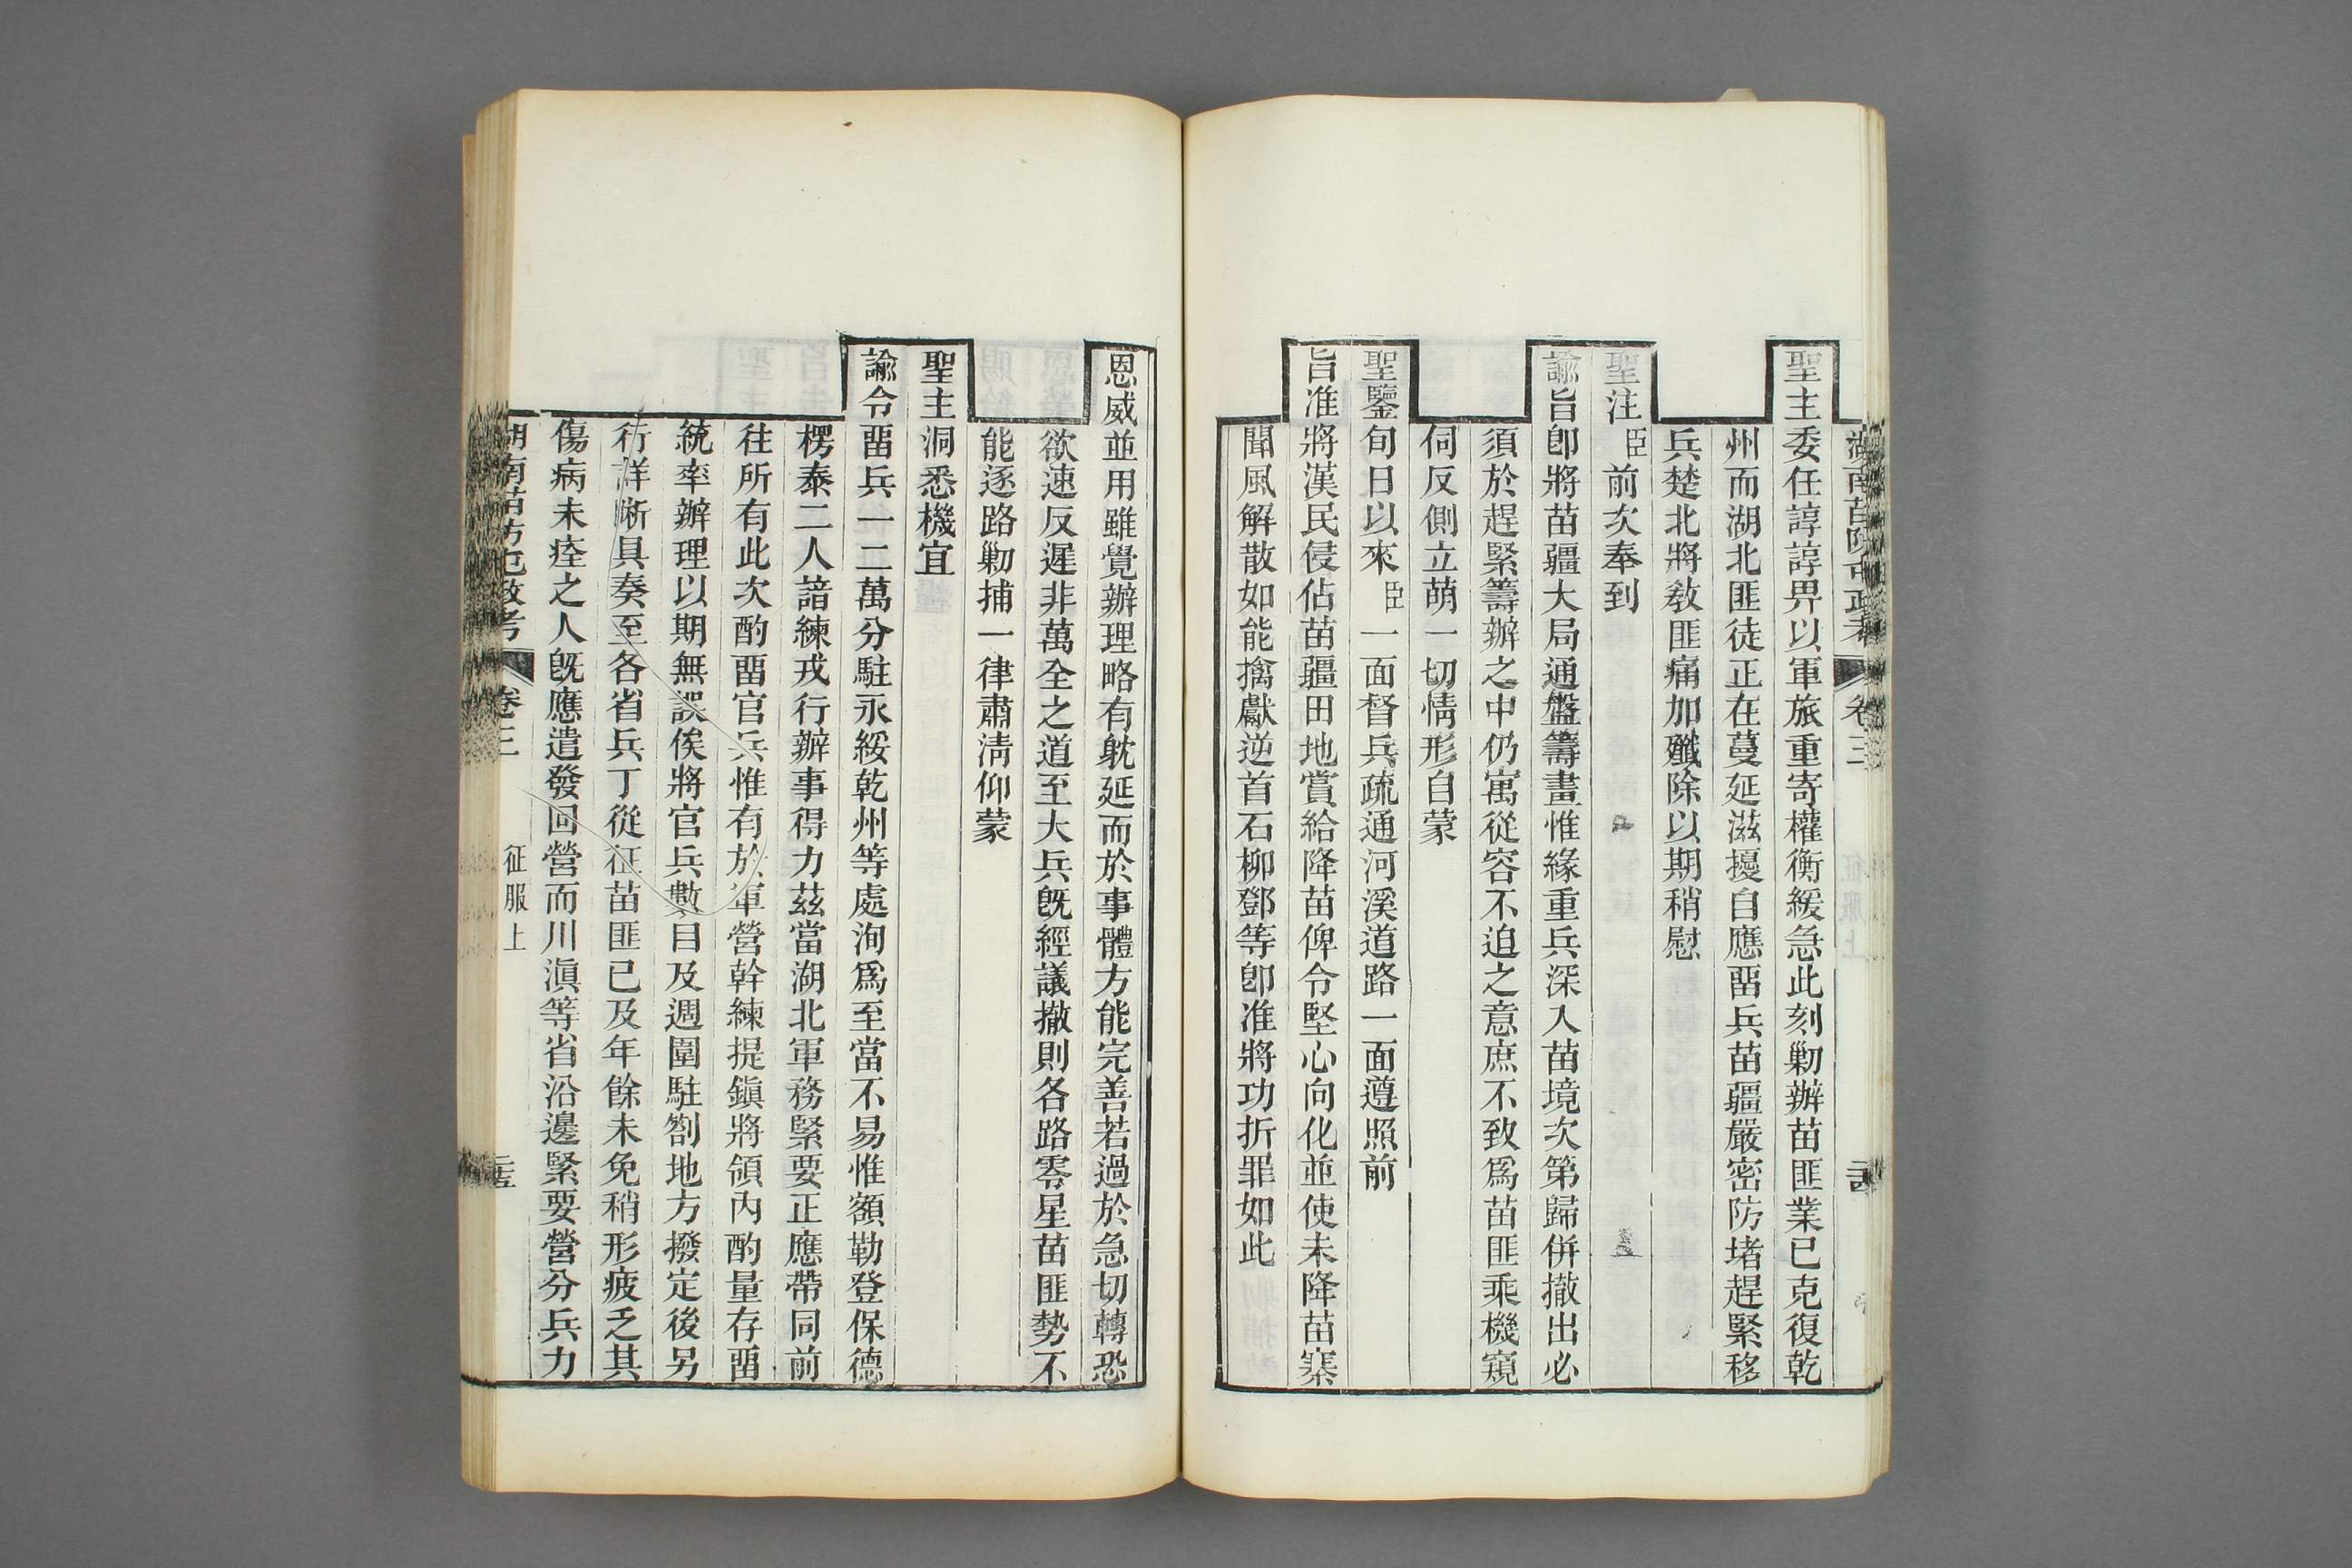 聖主委任諄諄畀以軍旅重寄權衡緩急此刻勦辦苗匪業已克復乾
州而湖北匪徒正在蔓延滋擾自應畱兵苗疆嚴密防堵趕緊移
兵楚北將敎匪痛加殲除以期稍慰
聖注臣前次奉到
諭旨卽將苗疆大局通盤籌畫惟緣重兵深入苗境次第歸併撤出必
須於趕緊籌辦之中仍寓從容不迫之意庶不致爲苗匪乘機窺
伺反側立萌一切情形自蒙
聖鑒旬日以來臣一面督兵疏通河溪道路一面遵照前
旨准將漢民侵佔苗疆田地賞給降苗俾令堅心向化並使未降苗寨
聞風解散如能擒獻逆首石柳鄧等卽准將功折罪如此
恩威並用雖覺辦理略有躭延而於事體方能完善若過於急切轉恐
欲速反遲非萬全之道至大兵旣經議撤則各路零星苗匪勢不
能逐路勦捕一律肅淸仰蒙
聖主洞悉機宜
諭令畱兵一二萬分駐永綏乾州等處洵爲至當不易惟額勒登保德
楞泰二人諳練戎行辦事得力茲當湖北軍務緊要正應帶同前
往所有此次酌畱官兵惟有於軍營幹練提鎭將領內酌量存畱
統率辦理以期無誤俟將官兵數目及週圍駐劄地方撥定後另
行詳晰具奏至各省兵丁從征苗匪已及年餘未免稍形疲乏其
傷病未痊之人旣應遣發回營而川滇等省沿邊緊要營分兵力
湖南苗防屯政考 卷三 征服上 二十五